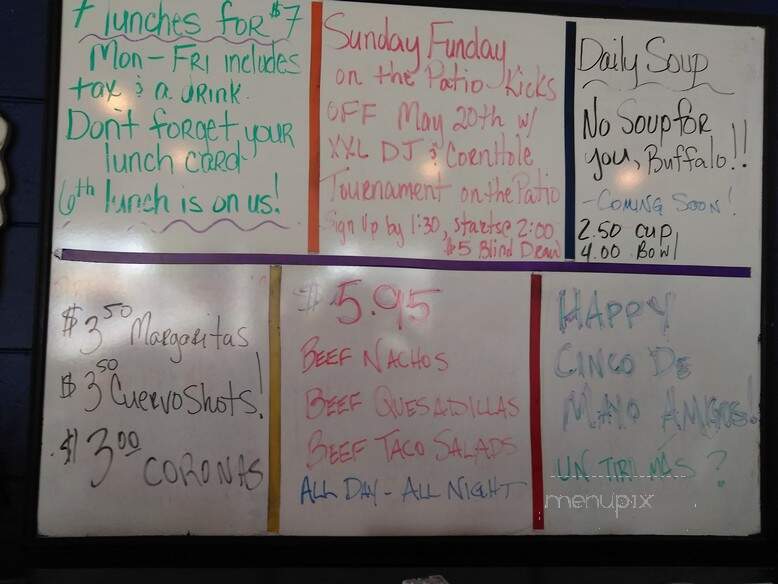 7 lunches for $7
Mon-Fri includes
tax & a drink
Don't forget your
lunch card
6th lunch is on us!
Sunday Funday
on the Patio Kicks
OFF May 20th w/
XXL DJ & Cornhole
Tournament on the Patio
Sign Up by 1:30, starts @ 2:00
$5 Blind Draw
Daily Soup
No Soup for
you, Buffalo!!
-Coming Soon!
2.50 cup
4.00 Bowl
$3.50 Margaritas
$3.50 Cuervo Shots!
$3.00 CORONAS
$5.95
BEEF NACHOS
BEEF QUESADILLAS
BEEF TACO SALADS
ALL DAY - ALL NIGHT
HAPPY
CINCO DE
MAYO AMIGOS!
UN TIRI MÁS?
menupix